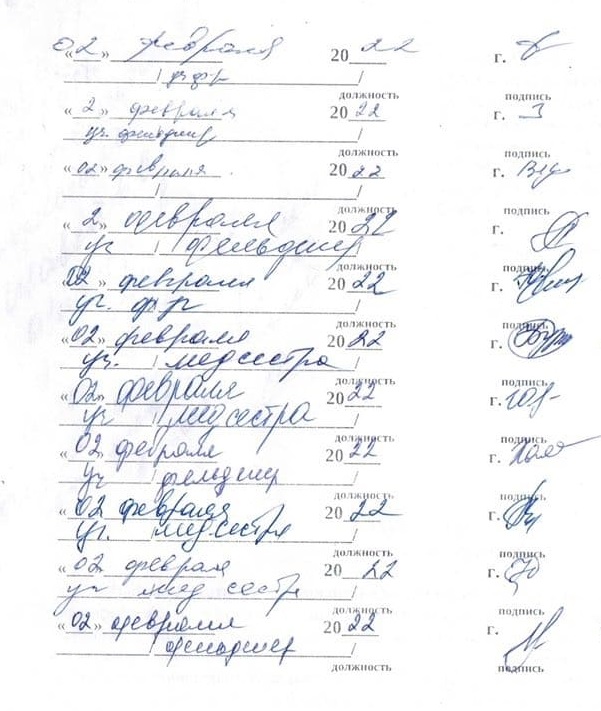 «02» февраля 2022 г.
/ /
должность подпись
«2» февраля 2022 г.
уч. фельдшер /
должность подпись
«02» февраля 2022 г.
/ /
должность подпись
«2» февраля 2022 г.
уч / фельдшер /
должность подпись
«02» февраля 2022 г.
уч. /
должность подпись
«02» февраля 2022 г.
уч. / медсестра /
должность подпись
«02» февраля 2022 г.
уч / медсестра /
должность подпись
«02» февраля 2022 г.
уч / фельдшер /
должность подпись
«02» февраля 2022 г.
уч. медсестра /
должность подпись
«02» февраля 2022 г.
уч мед сестра /
должность подпись
«02» февраля 2022 г.
/ фельдшер /
должность подпись